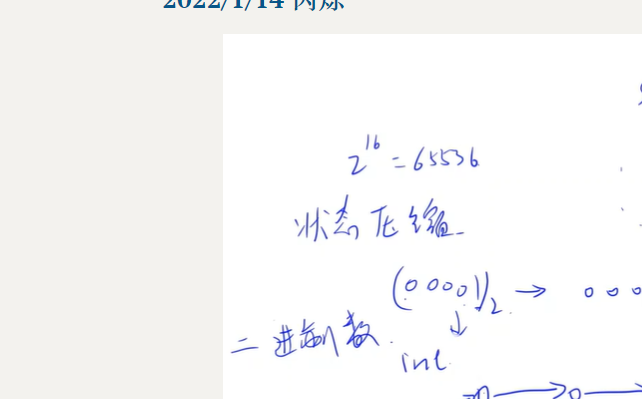 2022/1/14 内
2^16 = 65536
状态压缩
(00001)₂ → 000
二进制数. ↓
int